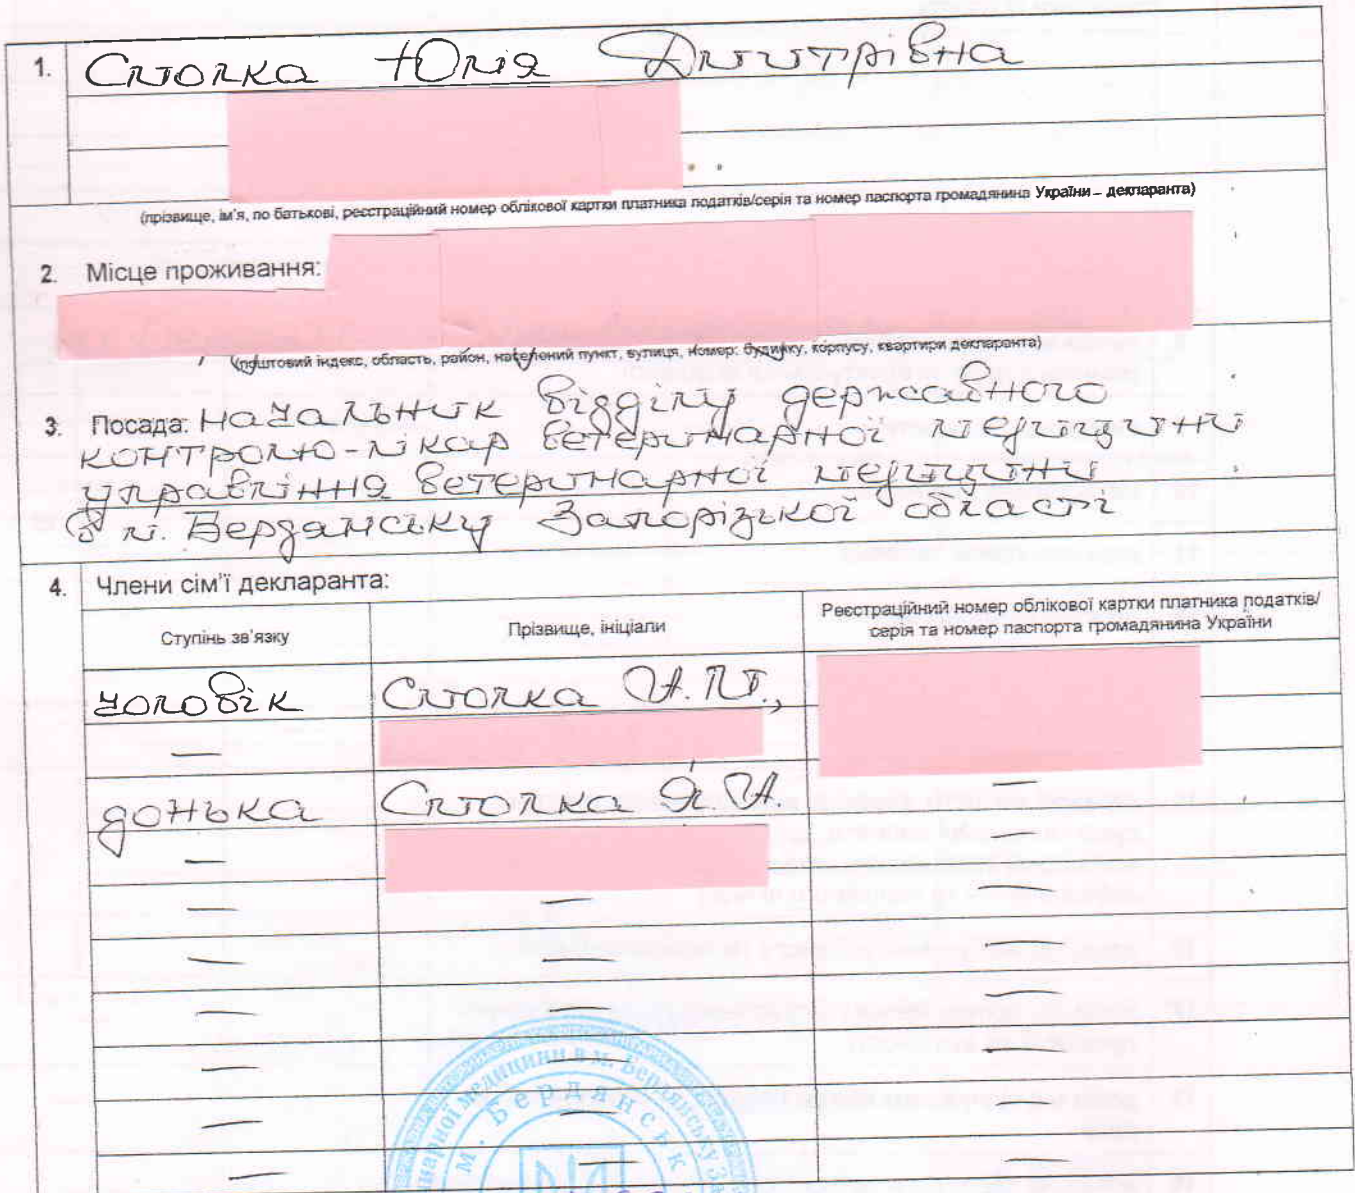 1. Смолка Юлія Дмитрівна
(прізвище, ім'я, по батькові, реєстраційний номер облікової картки платника податків/серія та номер паспорта громадянина України – декларанта)
2. Місце проживання:
(поштовий індекс, область, район, населений пункт, вулиця, номер: будинку, корпусу, квартири декларанта)
3. Посада: Начальник відділу державного
контролю-лікар ветеринарної медицини
управління ветеринарної медицини
в м. Бердянську Запорізької області
4. Члени сім'ї декларанта:
Ступінь зв'язку Прізвище, ініціали Реєстраційний номер облікової картки платника податків/
серія та номер паспорта громадянина України
чоловік Смолка И.П.,
—
донька Смолка Я.И. —
— —
— — —
— — —
— — —
— — —
— — —
— — —
медицини в м. Бердянську
м. Бердянськ